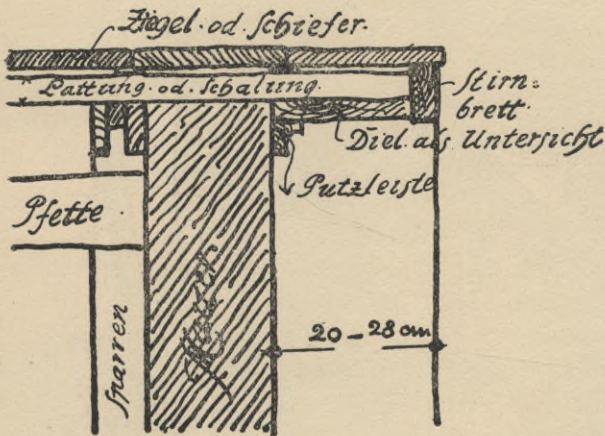 Ziegel. od. Schiefer.
Lattung. od. Schalung.
Stirn=
brett
Diel. als Untersicht
Putzleiste
Pfette
Mauer
20 — 28 cm
Sparren